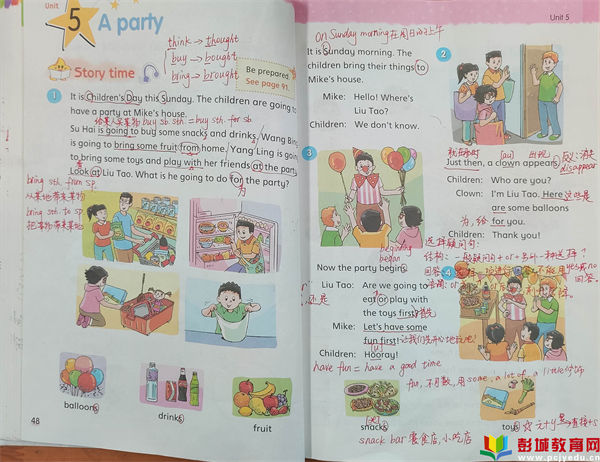 Unit 5 A party
think → thought
buy → bought
bring → brought
Story time
Be prepared.
See page 91.
1
It is Children's Day this Sunday. The children are going to
have a party at Mike's house.
buy sb. sth. = buy sth. for sb.
Su Hai is going to buy some snacks and drinks. Wang Bing
is going to bring some fruit from home. Yang Ling is going
to bring some toys and play with her friends at the party.
Look at Liu Tao. What is he going to do for the party?
为
bring sth. from sp.
从某地带来某物
bring sth. to sp.
把某物带来某地
balloons
drinks
fruit
48
Unit 5
on Sunday morning 在周日的上午
It is Sunday morning. The
children bring their things to
Mike's house.
Mike: Hello! Where's
Liu Tao?
Children: We don't know.
2
3
[au] 出现
反: 消失
disappear
Just then, a clown appears.
Children: Who are you?
Clown: I'm Liu Tao. Here 这些是
are some balloons
为, 给 for you.
Children: Thank you!
beginning
began
选择疑问句:
结构: 一般疑问句 + or + 另外一种选择?
Now the party begins.
4
Liu Tao: Are we going to
eat or play with
还是
the toys first? 首先
Mike: Let's have some
fun first! 让我们先开心地玩吧!
Children: Hooray!
have fun = have a good time
fun, 不可数, 用 some, a lot of, a little 修饰
snacks
toys
snack bar 餐食店, 小吃店
彭城教育网
www.pcjyedu.cn